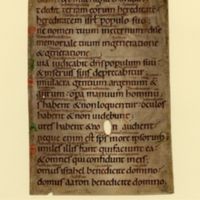 t dedit terram eorum heredita
hereditatem isrł populo suo
ne nomen tuum in eternum dne
memoriale tuum in generatione
& generatione
uia iudicabit dns populum suu
et in seruis suis deprecabitur
imulacra gentium argentum &
aurum opa manuum hominu
s habent & non loquentur oculos
habent & non uidebunt
ures habent & non audient
neque enim est sps in ore ipsorum
imiles illis fiant qui faciunt ea
& omnes qui confidunt in eis
omus israhel benedicite domino
domus aaron benedicite domino